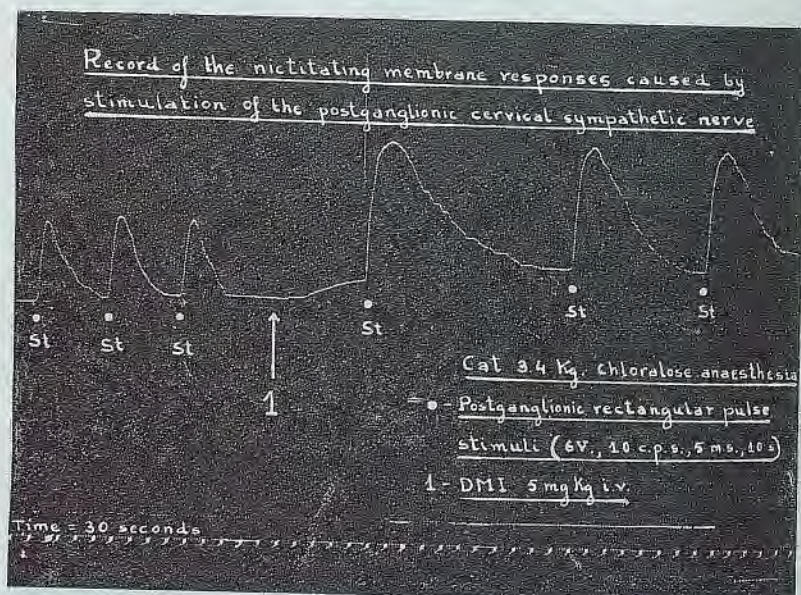 Record of the nictitating membrane responses caused by
stimulation of the postganglionic cervical sympathetic nerve
St
St
St
1
St
St
St
Cat 3.4 Kg. Chloralose anaesthesia
● - Postganglionic rectangular pulse
stimuli (6V., 10 c.p.s., 5 m.s., 10 s)
1 - DMI 5 mg Kg i.v.
Time = 30 seconds